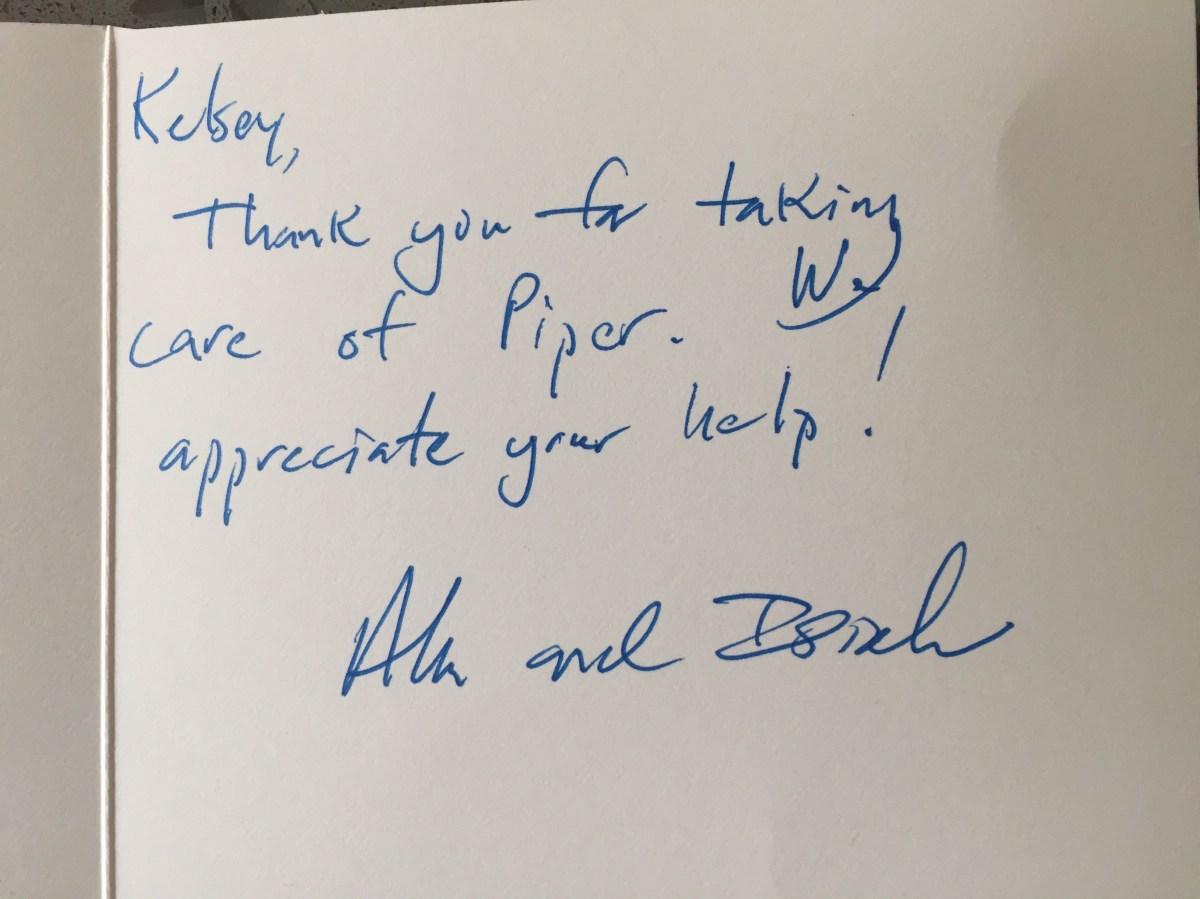 Kelsey,
Thank you for taking
care of Piper. We
appreciate your help!
and Isiah